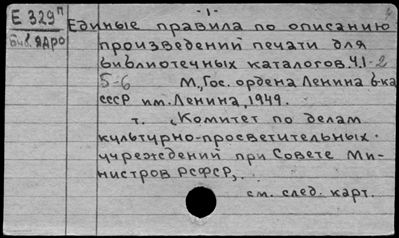 Е 329п
Биб. ядро
-1-
Единые правила по описанию
произведений печати для
библиотечных каталогов. Ч.1-2
5-6 М., Гос. ордена Ленина б-ка
СССР им. Ленина, 1949.
т. „Комитет по делам
культурно-просветительных
учреждений при Совете Ми-
нистров РСФСР,
см. след. карт.